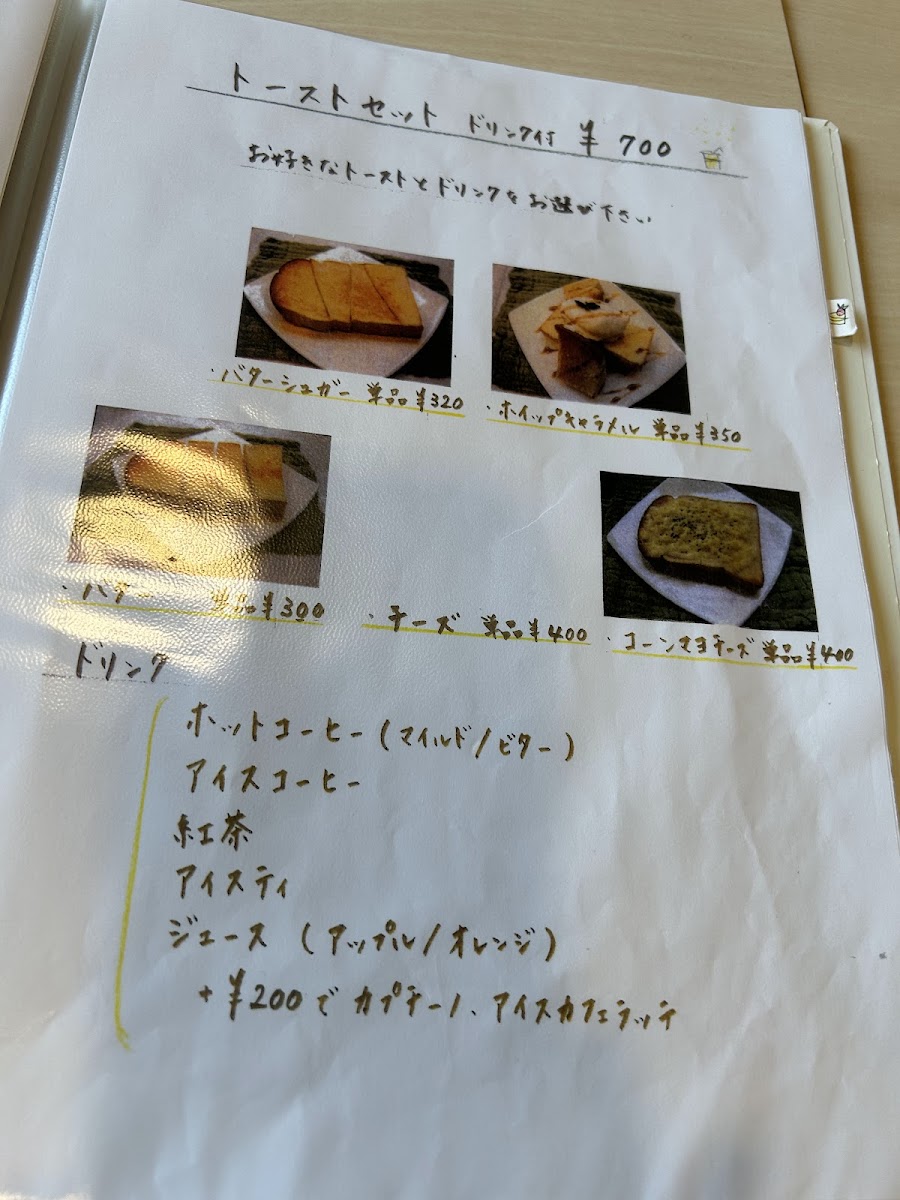 トーストセット ドリンク付 ¥700
お好きなトーストとドリンクをお選び下さい
・バターシュガー 単品¥320
・ホイップキャラメル 単品¥350
・バター 単品¥300
・チーズ 単品¥400
・コーンマヨチーズ 単品¥400
ドリンク
ホットコーヒー(マイルド/ビター)
アイスコーヒー
紅茶
アイスティ
ジュース (アップル/オレンジ)
+¥200で カプチーノ、アイスカフェラッテ